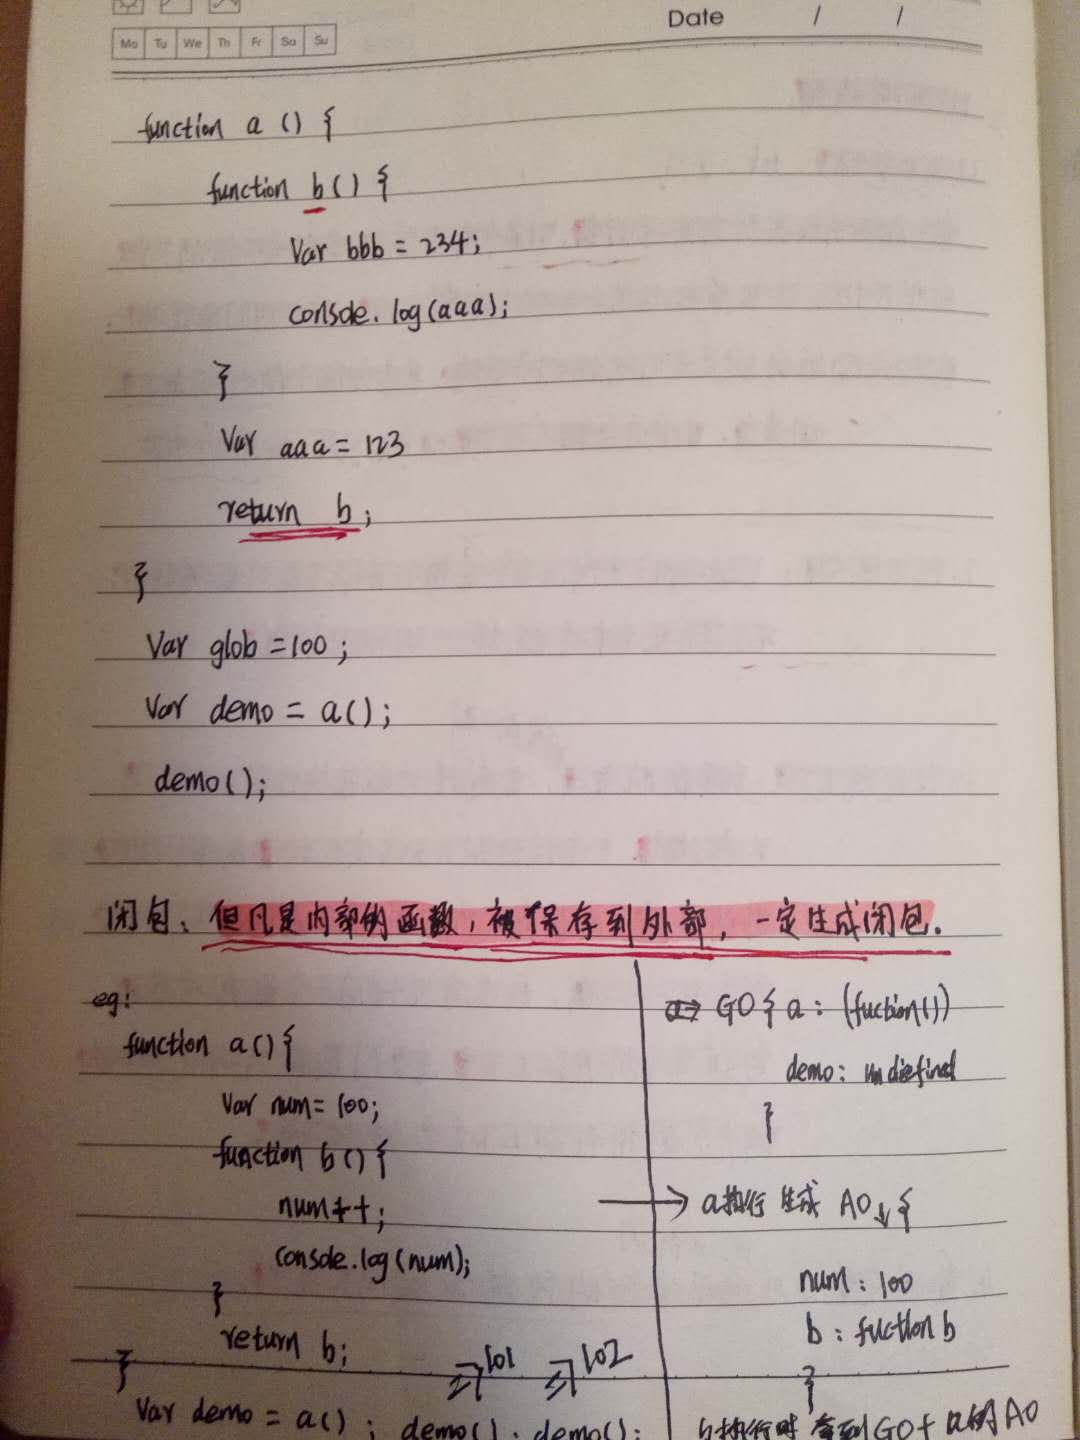 Date / /
Mo Tu We Th Fr Sa Su
function a () {
function b() {
Var bbb = 234;
console.log(aaa);
}
Var aaa = 123
return b;
}
Var glob = 100;
Var demo = a();
demo();
闭包: 但凡是内部的函数,被保存到外部,一定生成闭包.
eg:
function a(){
Var num = 100;
function b(){
num++;
console.log(num);
}
return b;
}
101 102
Var demo = a(); demo(); demo();
GO { a: (fuction())
demo: undiefined
}
→ a执行 生成 AO↓{
num: 100
b: fuction b
}
b执行时 拿到GO+ a的AO